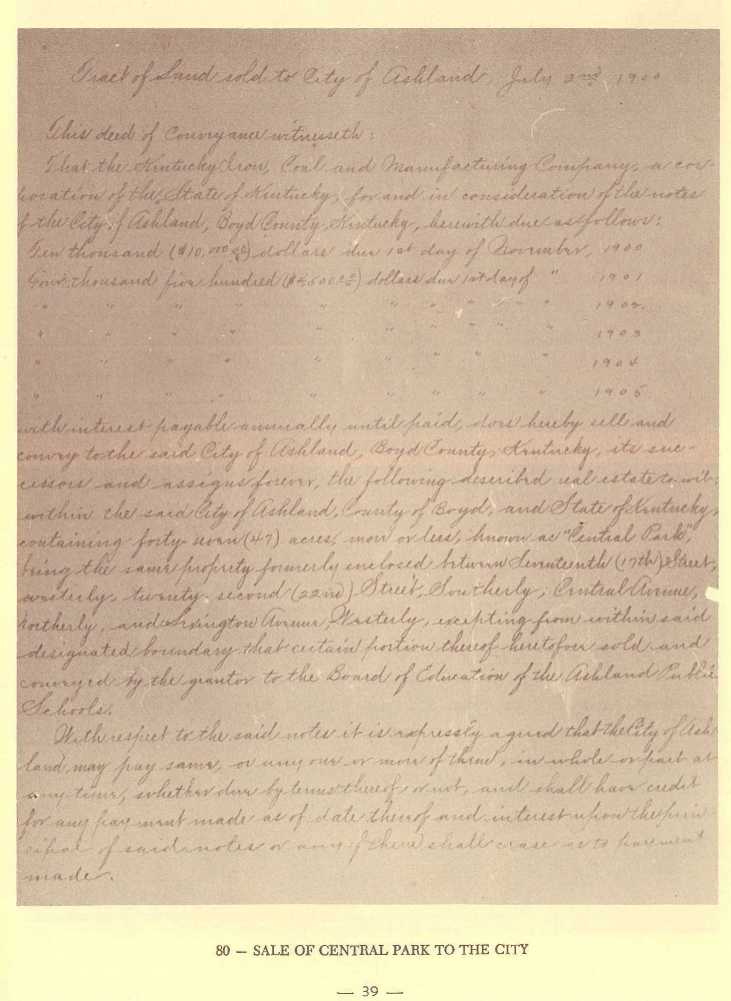 Tract of Land sold to City of Ashland, July 2nd 1900
This deed of conveyance witnesseth:
That the Kentucky Iron, Coal and Manufacturing Company, a cor-
poration of the State of Kentucky, for and in consideration of the notes
of the City of Ashland, Boyd County, Kentucky, herewith due as follows:
Ten thousand ($10,000.00) dollars due 1st day of November, 1900
Four thousand five hundred ($4,500.00) dollars due 1st day of " 1901
" " " " " " " " " " 1902.
" " " " " " " " " " 1903
" " " " " " " " " 1904
" " " " " " " " " 1905
with interest payable annually until paid, does hereby sell and
convey to the said City of Ashland, Boyd County, Kentucky, its suc-
cessors and assigns forever, the following described real estate to wit;
within the said City of Ashland, County of Boyd, and State of Kentucky,
containing forty-seven (47) acres, more or less, known as "Central Park",
being the same property formerly enclosed between Seventeenth (17th) Street,
westerly, twenty-second (22nd) Street, Southerly; Central Avenue,
Northerly, and Lexington Avenue Westerly, excepting from within said
designated boundary that certain portion thereof heretofore sold and
conveyed by the grantor to the Board of Education of the Ashland Public
Schools.
With respect to the said notes it is expressly agreed that the City of Ash-
land, may pay same, or any one or more of them, in whole or part at
any time, whether due by terms thereof or not, and shall have credit
for any payment made as of date thereof and interest upon the prin-
cipal of said notes or any of them shall cease as to payment
made.
80 — SALE OF CENTRAL PARK TO THE CITY
— 39 —